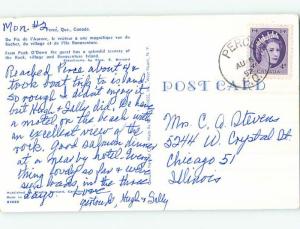 Mon. #2
Percé, Que., Canada.
Du Pic de l'Aurore, le visiteur a une magnifique vue du
Rocher, du village et de l'Ile Bonaventure.
From Peak O'Dawn the guest has a splendid scenery of
the Rock, village and Bonaventure Island.
Reached Perce about 4 -
took boat trip to island
so rough I didn't enjoy it
but Hugh & Sally did. We have
a motel on the beach with
an excellent view of the
rock. Good salmon dinner
at a nearby hotel. Every-
thing lovely so far & we've
seen in the three
days. Love
Gertrude, Hugh & Sally
PERCE
AU
CANADA
POST CARD
Mrs. C. A. Stevens
5244 W. Crystal St
Chicago 51
Illinois